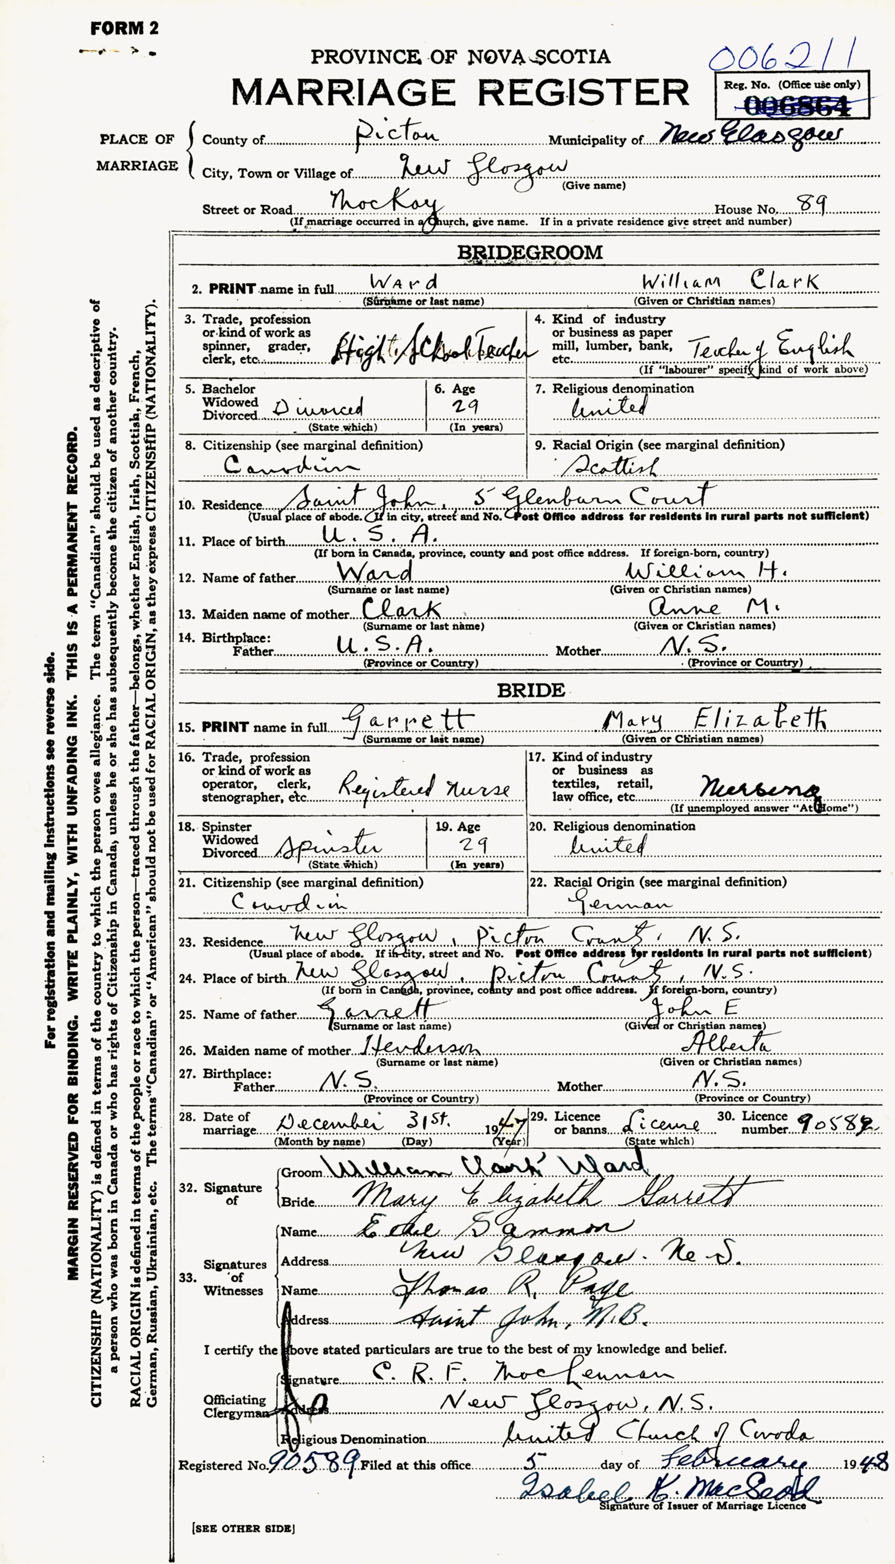 FORM 2
PROVINCE OF NOVA SCOTIA
006211
MARRIAGE REGISTER
Reg. No. (Office use only)
006864
PLACE OF MARRIAGE
County of Pictou Municipality of New Glasgow
City, Town or Village of New Glasgow
(Give name)
Street or Road MacKay House No. 89
(If marriage occurred in a church, give name. If in a private residence give street and number)
BRIDEGROOM
2. PRINT name in full Ward William Clark
(Surname or last name) (Given or Christian names)
3. Trade, profession or kind of work as spinner, grader, clerk, etc. High School Teacher
4. Kind of industry or business as paper mill, lumber, bank, etc. Teacher of English
(If "labourer" specify kind of work above)
5. Bachelor Widowed Divorced Divorced
(State which)
6. Age 29
(In years)
7. Religious denomination
United
8. Citizenship (see marginal definition)
Canadian
9. Racial Origin (see marginal definition)
Scottish
10. Residence Saint John, 5 Glenburn Court
(Usual place of abode. If in city, street and No. Post Office address for residents in rural parts not sufficient)
11. Place of birth U. S. A.
(If born in Canada, province, county and post office address. If foreign-born, country)
12. Name of father Ward William H.
(Surname or last name) (Given or Christian names)
13. Maiden name of mother Clark Anne M.
(Surname or last name) (Given or Christian names)
14. Birthplace:
Father U.S.A. Mother N.S.
(Province or Country) (Province or Country)
BRIDE
15. PRINT name in full Garrett Mary Elizabeth
(Surname or last name) (Given or Christian names)
16. Trade, profession or kind of work as operator, clerk, stenographer, etc. Registered Nurse
17. Kind of industry or business as textiles, retail, law office, etc. Nursing
(If unemployed answer "At Home")
18. Spinster Widowed Divorced Spinster
(State which)
19. Age 29
(In years)
20. Religious denomination
United
21. Citizenship (see marginal definition)
Canadian
22. Racial Origin (see marginal definition)
German
23. Residence New Glasgow, Pictou County, N.S.
(Usual place of abode. If in city, street and No. Post Office address for residents in rural parts not sufficient)
24. Place of birth New Glasgow, Pictou County, N.S.
(If born in Canada, province, county and post office address. If foreign-born, country)
25. Name of father Garrett John E
(Surname or last name) (Given or Christian names)
26. Maiden name of mother Henderson Alberta
(Surname or last name) (Given or Christian names)
27. Birthplace:
Father N.S. Mother N.S.
(Province or Country) (Province or Country)
28. Date of marriage December 31st. 1947
(Month by name) (Day) (Year)
29. Licence or banns License
(State which)
30. Licence number 90589
32. Signature of
Groom William Clark Ward
Bride Mary Elizabeth Garrett
33. Signatures of Witnesses
Name Gammon
Address New Glasgow. N.S.
Name Thomas R. Page
Address Saint John, N.B.
I certify the above stated particulars are true to the best of my knowledge and belief.
Officiating Clergyman
Signature C. R. F. MacLennan
Address New Glasgow, N.S.
Religious Denomination United Church of Canada
Registered No. 90589 Filed at this office 5 day of February 1948
Isabel K. MacLeod
Signature of Issuer of Marriage Licence
[SEE OTHER SIDE]
For registration and mailing instructions see reverse side.
MARGIN RESERVED FOR BINDING. WRITE PLAINLY, WITH UNFADING INK. THIS IS A PERMANENT RECORD.
CITIZENSHIP (NATIONALITY) is defined in terms of the country to which the person owes allegiance. The term "Canadian" should be used as descriptive of
a person who was born in Canada or who has rights of Citizenship in Canada, unless he or she has subsequently become the citizen of another country.
RACIAL ORIGIN is defined in terms of the people or race to which the person—traced through the father—belongs, whether English, Irish, Scottish, French,
German, Russian, Ukrainian, etc. The terms "Canadian" or "American" should not be used for RACIAL ORIGIN, as they express CITIZENSHIP (NATIONALITY).